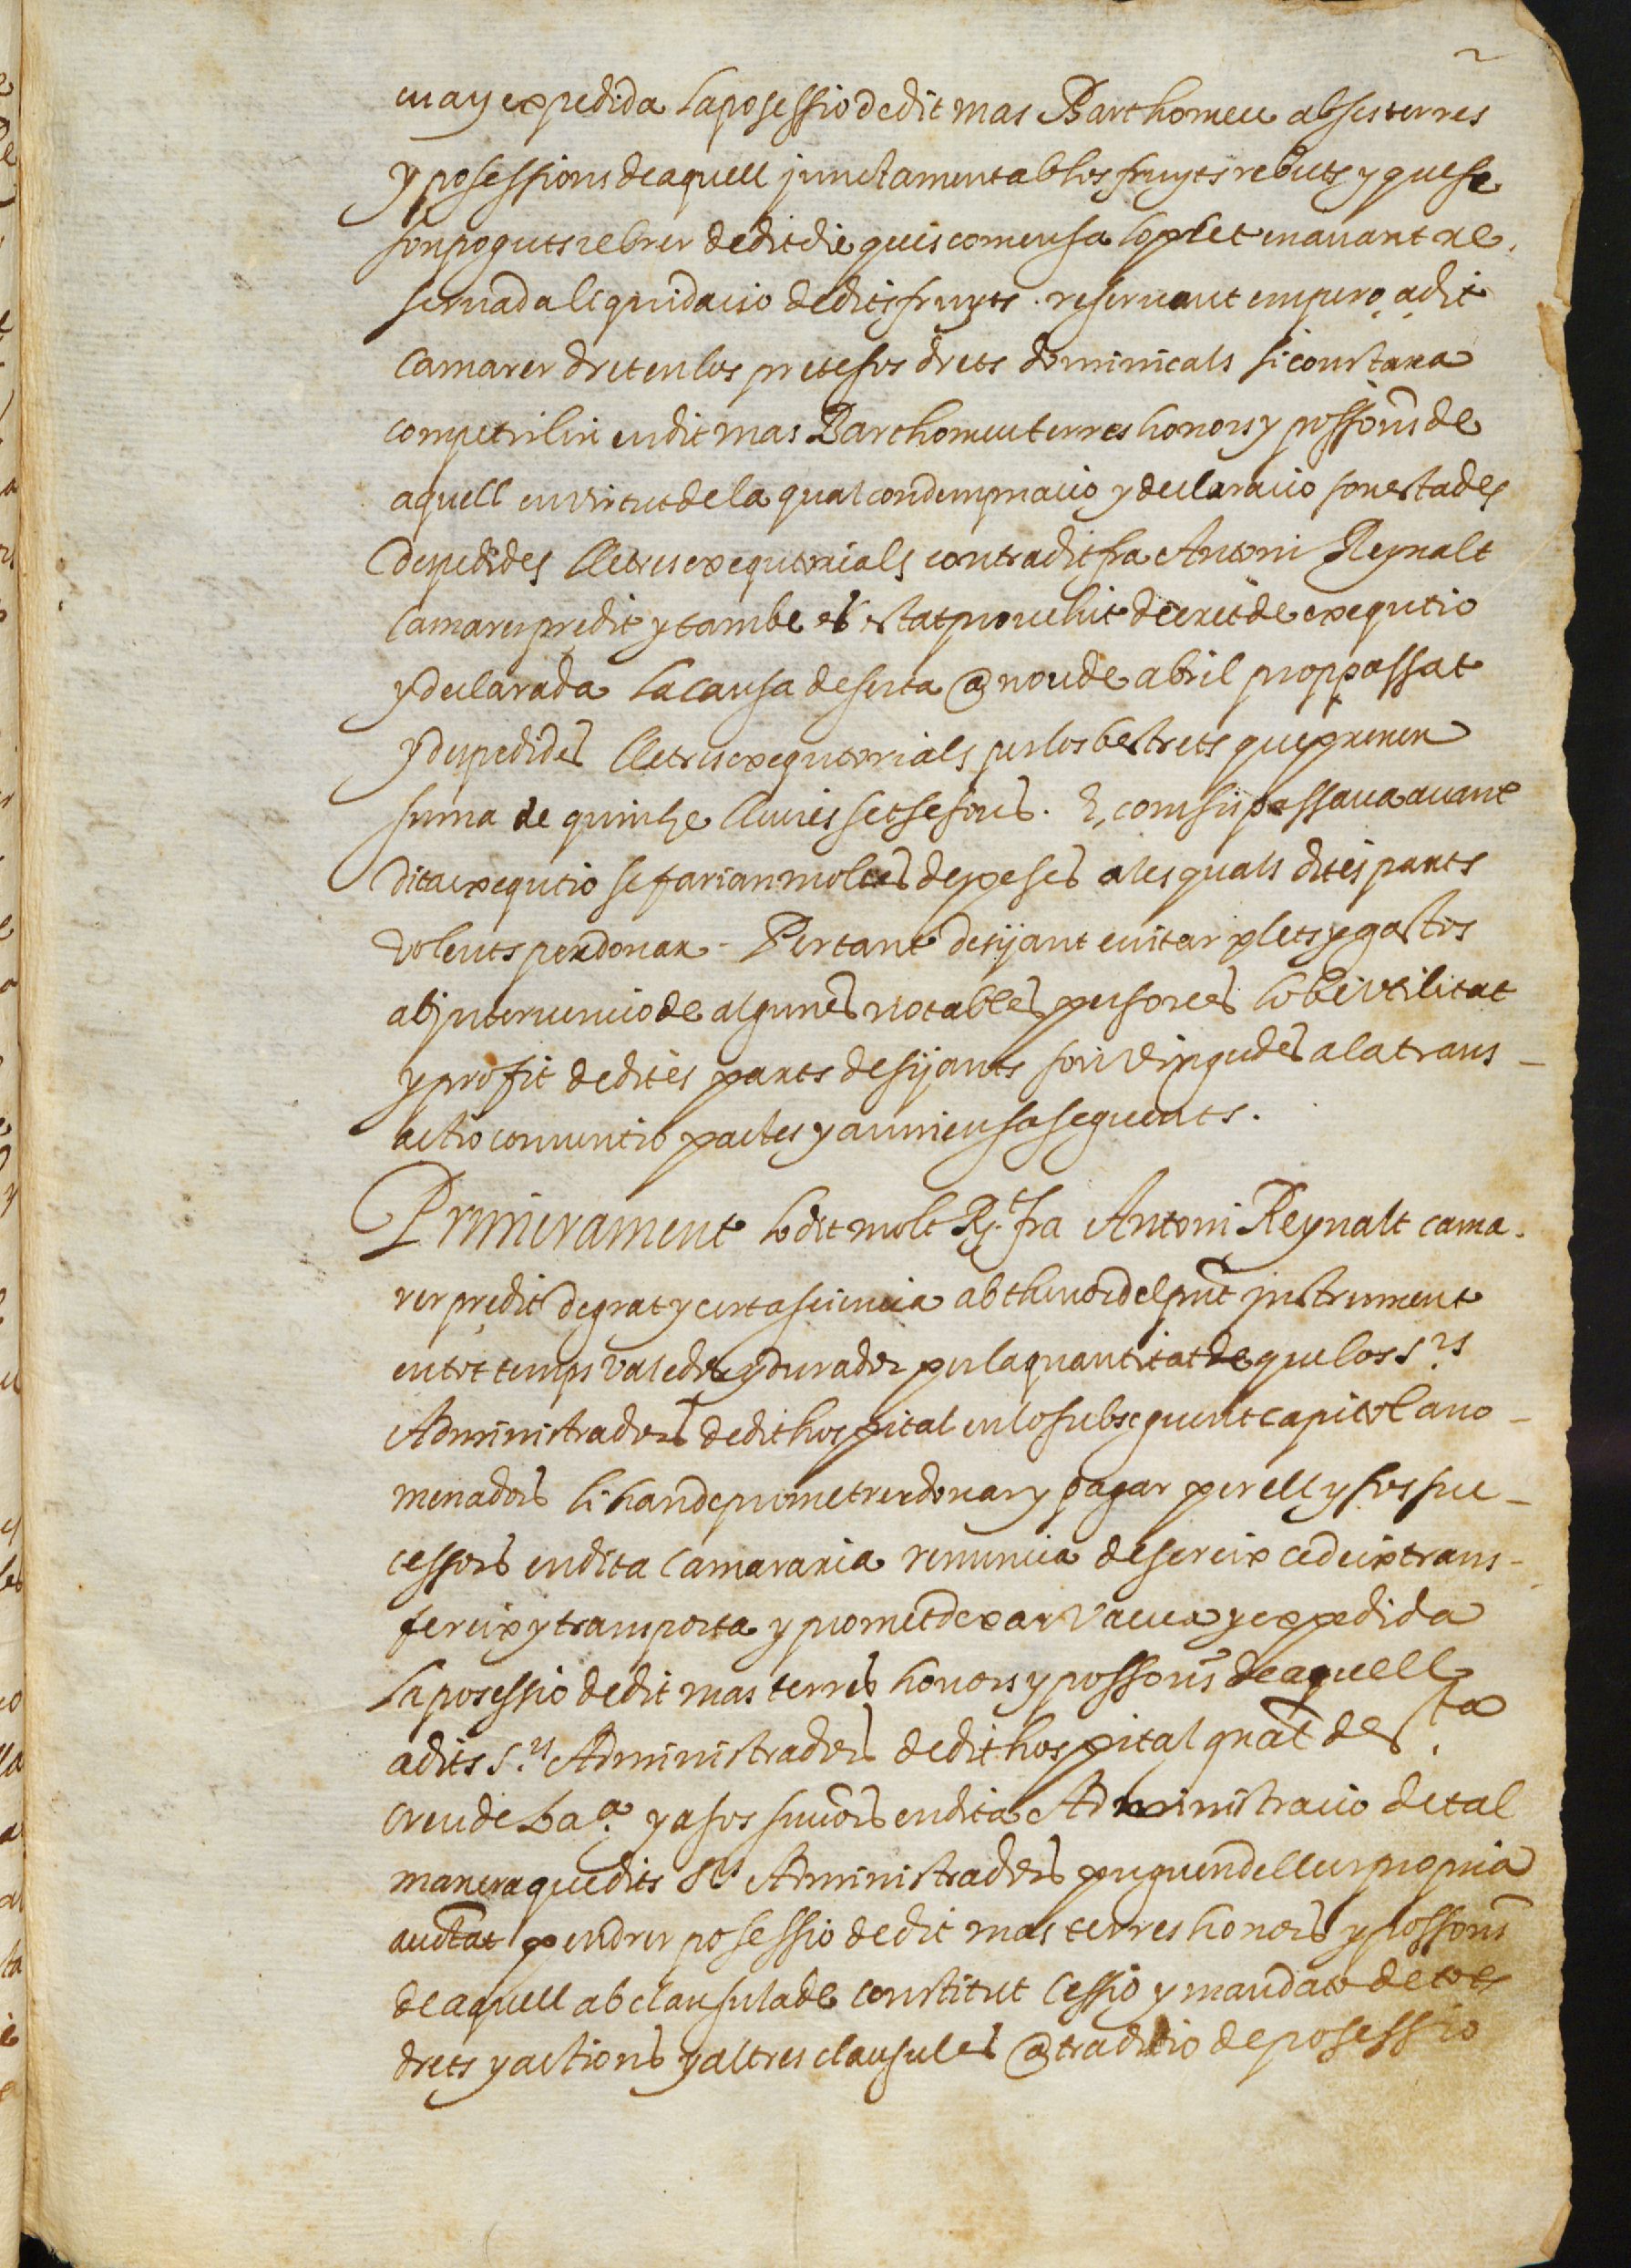 2
cua y expedida la posessio de dit mas Barthomeu ab ses terres
y posessions de aquell junctament ab los fruyts rebuts y que se
son poguts rebrer de dit die quis comensa lo plet en avant re-
servada liquidacio de dits fruyts. reservant empero a dit
Camarer dret en los pretesos drets dominicals si constara
competirli en dit mas Barthomeu terres honors y possors de
aquell en virtut de la qual condempnacio y declaracio son estades
despedides lletres exequtorials contra dit fra Antoni Reynalt
Camarer predit y tambe es estat provehit decret de exequtio
y declarada la causa deserta a nou de abril prop passat
y despedides lletres exequtorials per los bestrets que prenen
suma de quinse lliures set sesous. E, com sis passava avant
dita exequtio se farian moltes despeses a les quals dites parts
volents perdonar - Pertant desijant evitar plets y gastos
ab intervencio de algunes notables persones lo be utilitat
y profit de dites parts desijants son vingudes a la trans-
actio conventio pactes y avinensa seguents.
Primerament lo dit molt Rt. fra Antoni Reynalt cama-
rer predit de grat y certa sciencia ab thenor del pnt instrument
en tot temps valedor y durador per la quantitat de que los Srs
Administradors de dit hospital en lo subseguent capitol ano-
menadors li han de prometrer donar y pagar per ell y sos suc-
cessors en dita Camararia renuncia desereix cedeix trans-
fereix y transporta y promet dexar vacua y expedida
la posessio de dit mas terres honors y possors de aquell
a dits Srs Administradors de dit hospital gnal de Sta
Creu de Bara. y a sos succors en dita Administracio de tal
manera que dits Srs Administradors puguen de llur propria
auctat pendrer posessio de dit mas terres honors y possors
de aquell ab clausula de constitut cessio y mandato de tots
drets y actions y altres clausules a traditio de posessio